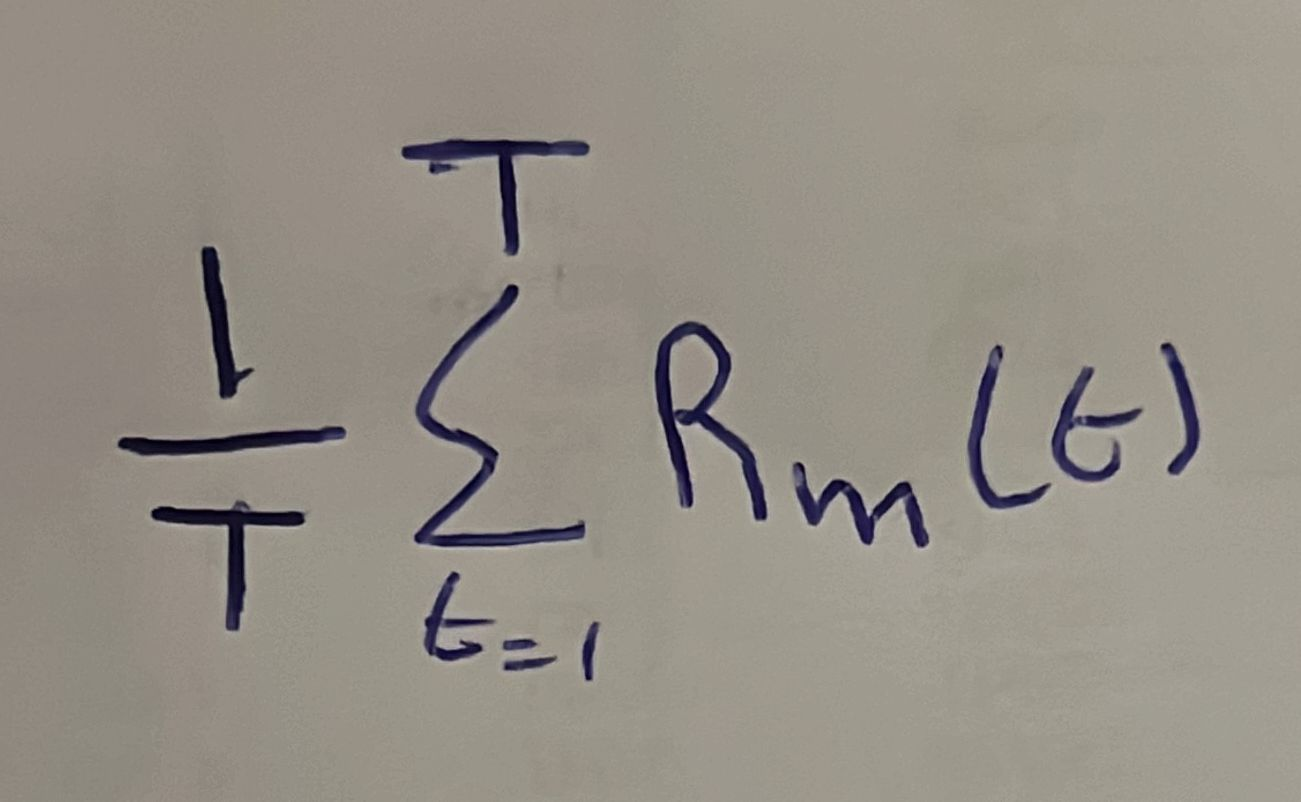 \frac{1}{T} \sum_{t=1}^{T} R_m(t)